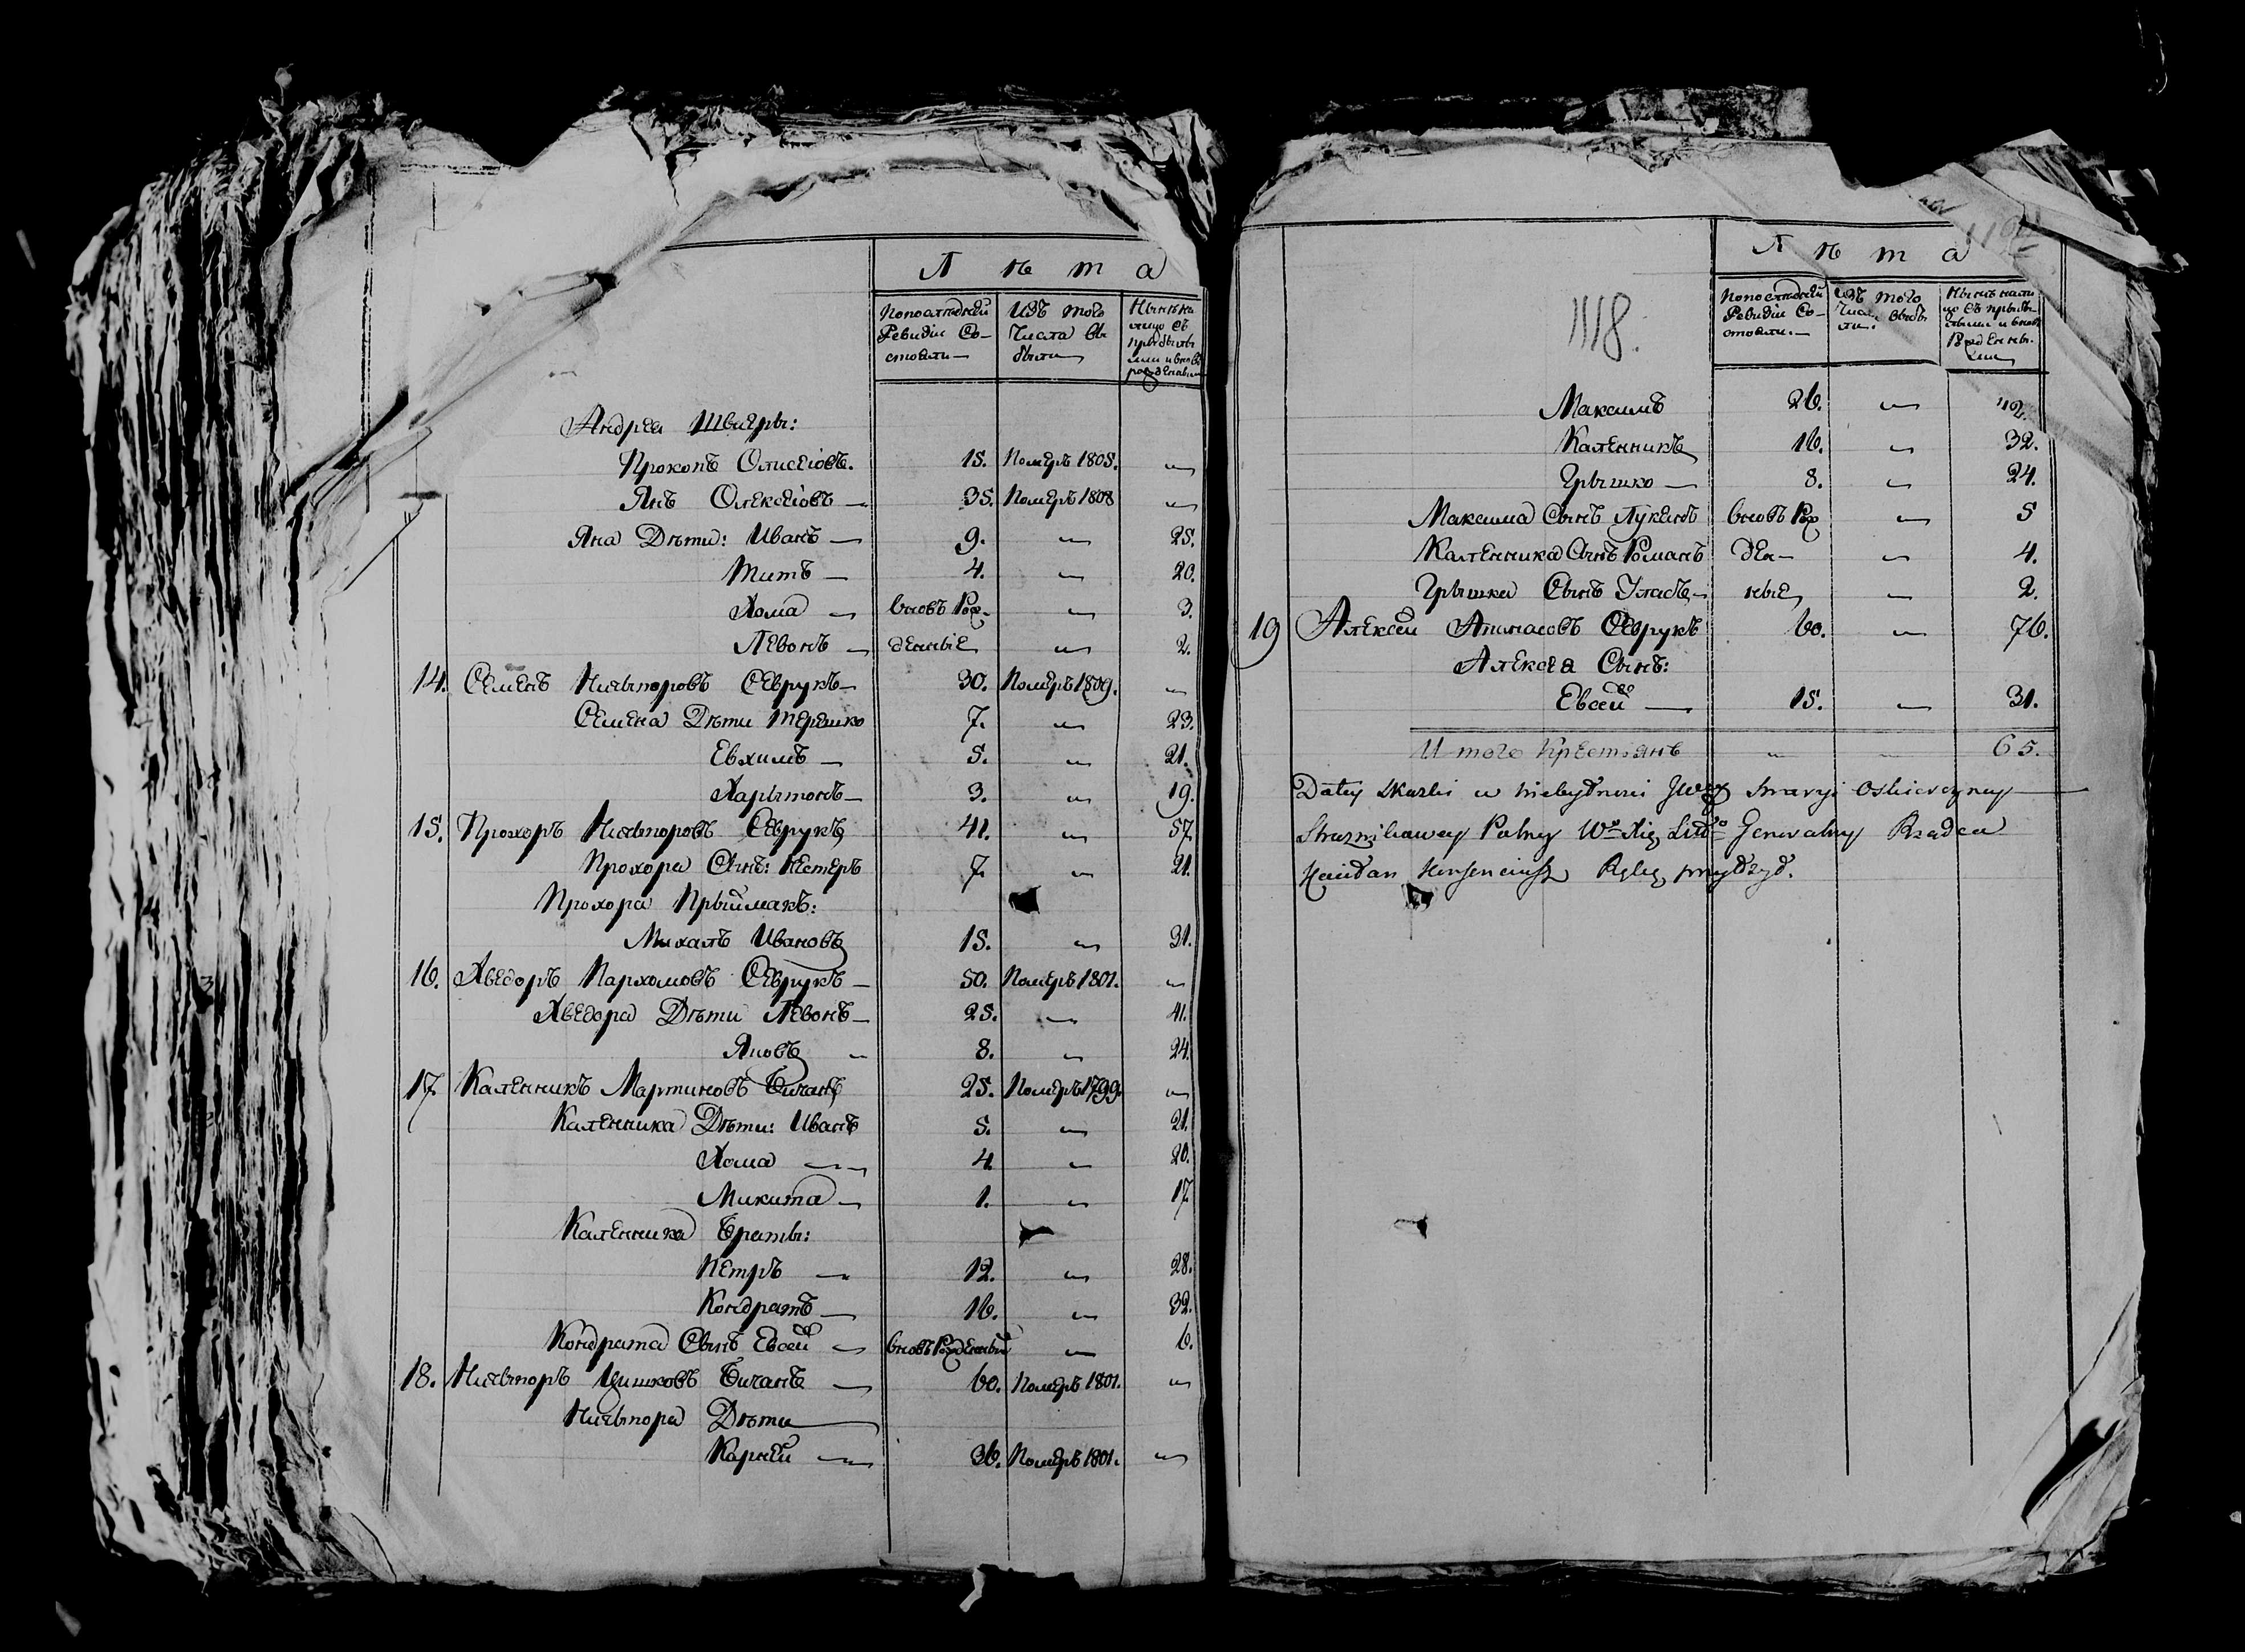 Лѣта
По последней Ревизіи Со-стояли —
Изъ того Числа вы были
Нынѣ на лицо съ прибылы ми и вновь рожденными
Андрея Швагры:
Прокопъ Олисеіовъ. 15. Померъ 1805. —
Янъ Олексеіовъ — 35. Померъ 1808 —
Яна Дѣти: Иванъ — 9. — 25.
Титъ — 4. — 20.
Хома — вновь Рож- — 3.
Левонъ — денные — 2.
14. Семенъ Ничыпоровъ Севрукъ — 30. Померъ 1809. —
Семена Дѣти Терешко 7. — 23.
Евхимъ — 5. — 21.
Харытонъ — 3. — 19.
15. Прохоръ Ничыпоровъ Севрукъ 41. — 57.
Прохора Сынъ: Нестеръ 7. — 21.
Прохора Прыймакъ:
Михалъ Ивановъ 15. — 31.
16. Хведоръ Пархомовъ Севрукъ — 50. Померъ 1801. —
Хведора Дѣти Левонъ — 25. — 41.
Яковъ — 8. — 24.
17. Каленникъ Мартиновъ Бичанъ 25. Померъ 1799. —
Каленника Дѣти: Иванъ 5. — 21.
Хома — 4 — 20.
Микита — 1. — 17
Каленника Браты:
Петръ — 12. — 28.
Кондратъ — 16. — 32.
Кондрата Сынъ Евсей — вновь Рожденный — 6.
18. Ничыпоръ Цишковъ Бичанъ — 60. Померъ 1801. —
Ничыпора Дѣти
Карнѣй — 36. Померъ 1801. —
1118.
Лѣта
По последней Ревизіи Со-стояли. —
Изъ того Числа выбы ли.
Нынѣ на ли цо съ прыбы лыми и вновь Рожденны- ми
Максимъ 26. — 42.
Каленникъ 16. — 32.
Грышко — 8. — 24.
Максима Сынъ Лукянъ вновь Рож — 5
Каленника Сынъ Романъ ден- — 4.
Грышка Сынъ Уласъ — ные — 2.
19 Алексѣй Апанасовъ Севрукъ 60. — 76.
Алексѣя Сынъ:
Евсей — 15. — 31.
И того Крестьянъ — — 65.
Datey skazki w niebytności Starażyny
Generalny Rządca